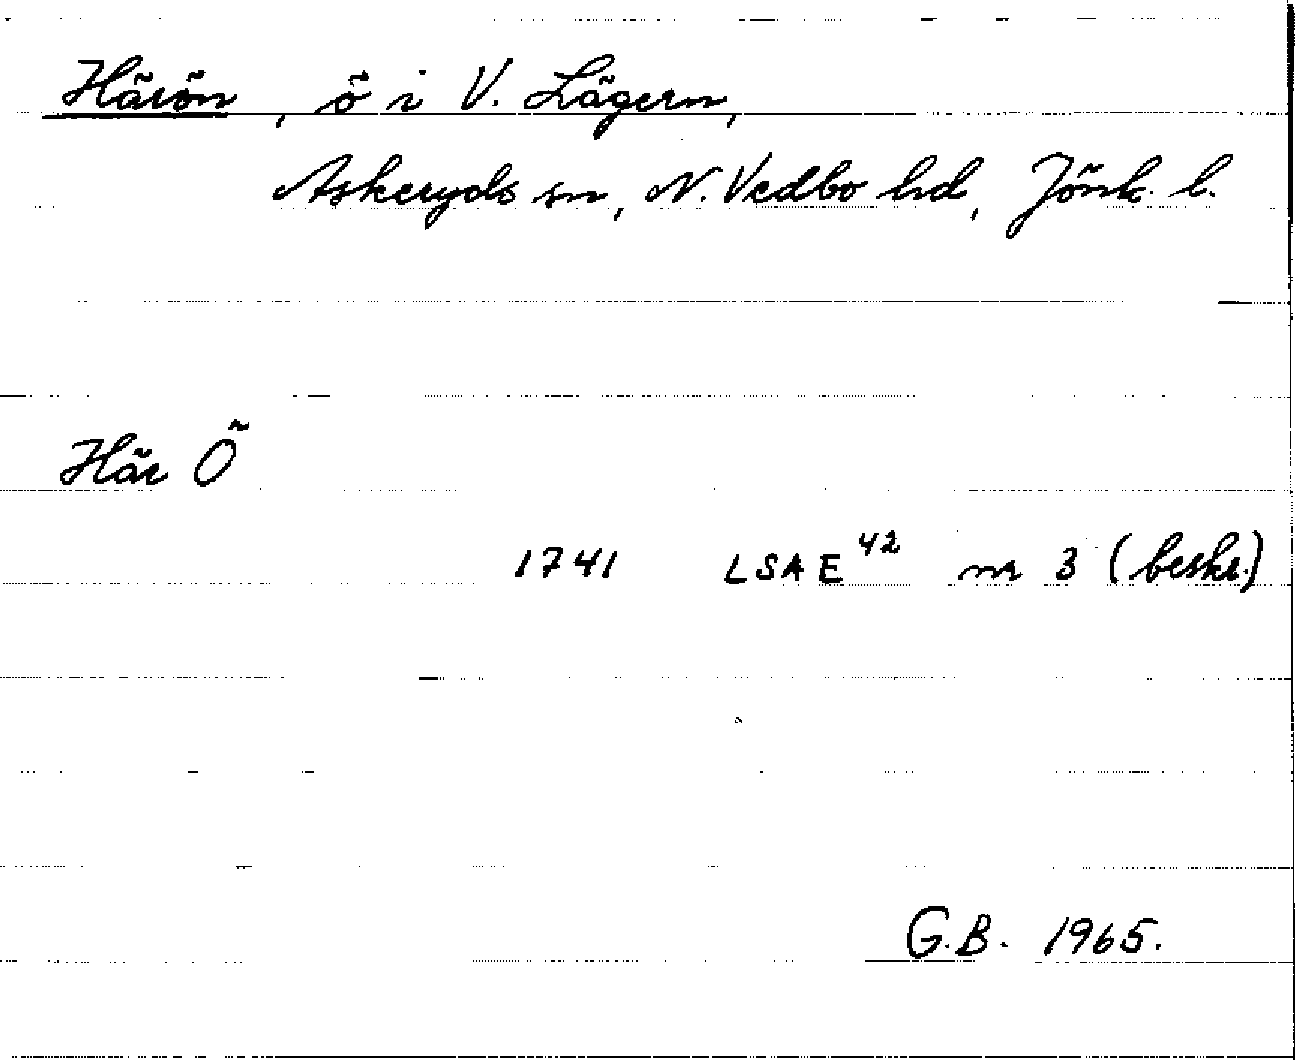 Härön, ö i V. Lägern,
Askeryds sn, N. Vedbo hd, Jönk. l.
Här Ö
1741 LSA E⁴² nr 3 (beskr.)
G.B. 1965.